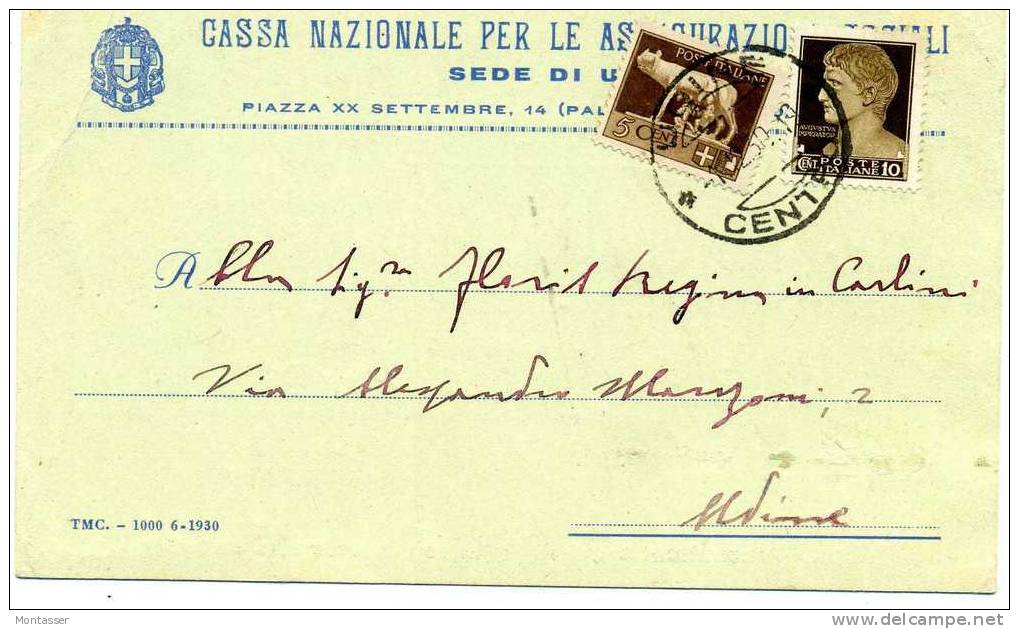 CASSA NAZIONALE PER LE ASSICURAZIONI SOCIALI
SEDE DI U
PIAZZA XX SETTEMBRE, 14 (PAL
POSTE ITALIANE
5 CENT
AVGVSTVS
IMPERATOR
POSTE
CENT. ITALIANE 10
CENT
Alla Sig.ra Florit Regina in Carlini
Via Alessandro Manzoni, 2
Udine
TMC. - 1000 6-1930
Montasser
delcampe.net